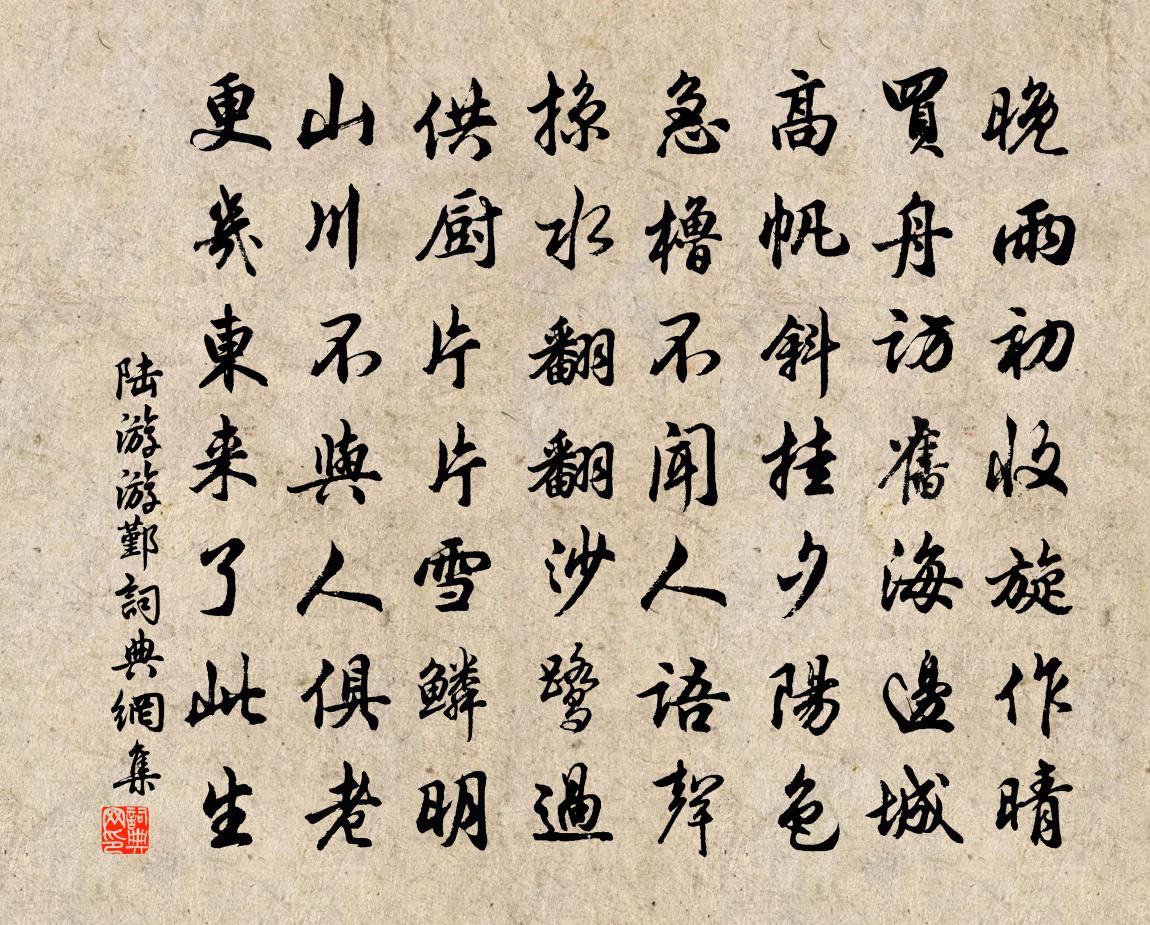 晚雨初收旋作晴
買舟訪舊海邊城
高帆斜挂夕陽色
急櫓不聞人語聲
掠水翻翻沙鷺過
供厨片片雪鱗明
山川不與人俱老
更幾東来了此生
陆游游鄞詞典網集
詞典网印